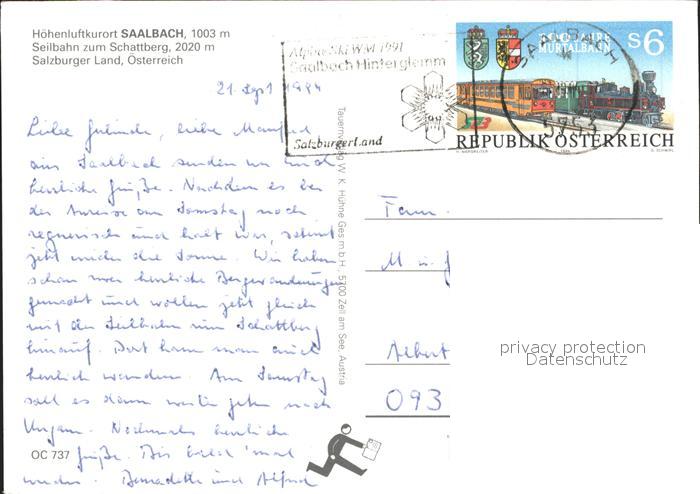 Höhenluftkurort SAALBACH, 1003 m
Seilbahn zum Schattberg, 2020 m
Salzburger Land, Österreich
Alpine Ski WM 1991
Saalbach Hinterglemm
SalzburgerLand
SAALBACH
5753
100 JAHRE
MURTALBAHN
S6
REPUBLIK ÖSTERREICH
21. Sept 1994
Liebe Gelinde, liebe Manfred
aus Saalbach senden wir euch
herzliche Grüße. Nachdem es bei
der Anreise am Samstag noch
regnerisch und kalt war, scheint
jetzt wieder die Sonne. Wir haben
schon zwei herrliche Bergwanderungen
gemacht und wollen jetzt gleich
mit der Seilbahn zum Schattberg
hinauf. Dort kann man auch
herrlich wandern. Am Samstag
soll es dann weiter gehen nach
Ungarn. Nochmals herzliche
Grüße. Bis bald 'mal
wieder. Bernadette und Alfred
Tauernverlag W. K. Hühne Ges.m.b.H., 5700 Zell am See, Austria
Fam.
M u.
Albert
093
privacy protection
Datenschutz
OC 737